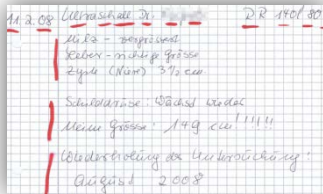 11.2.08 Ultraschall Dr. BR 140/80
Milz - vergrössert
Leber - richtige Grösse
Zyste (Niere) 3½ cm
Schilddrüse: Wächst wieder
Meine Grösse: 149 cm!!!!!
Wiederholung der Untersuchung:
August 2008